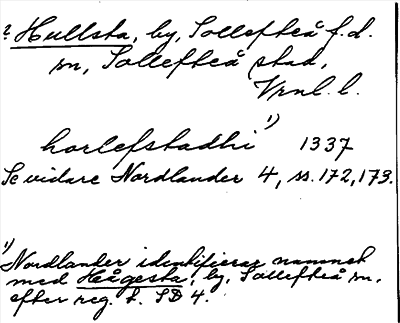 ? Hullsta, by, Sollefteå f.d.
sn, Sollefteå stad,
Vrnl. l.
horlefstadhi ¹⁾ 1337
Se vidare Nordlander 4, ss. 172, 173.
¹⁾ Nordlander identifierar namnet
med Hågesta, by, Sollefteå sn,
efter reg. t. SD 4.